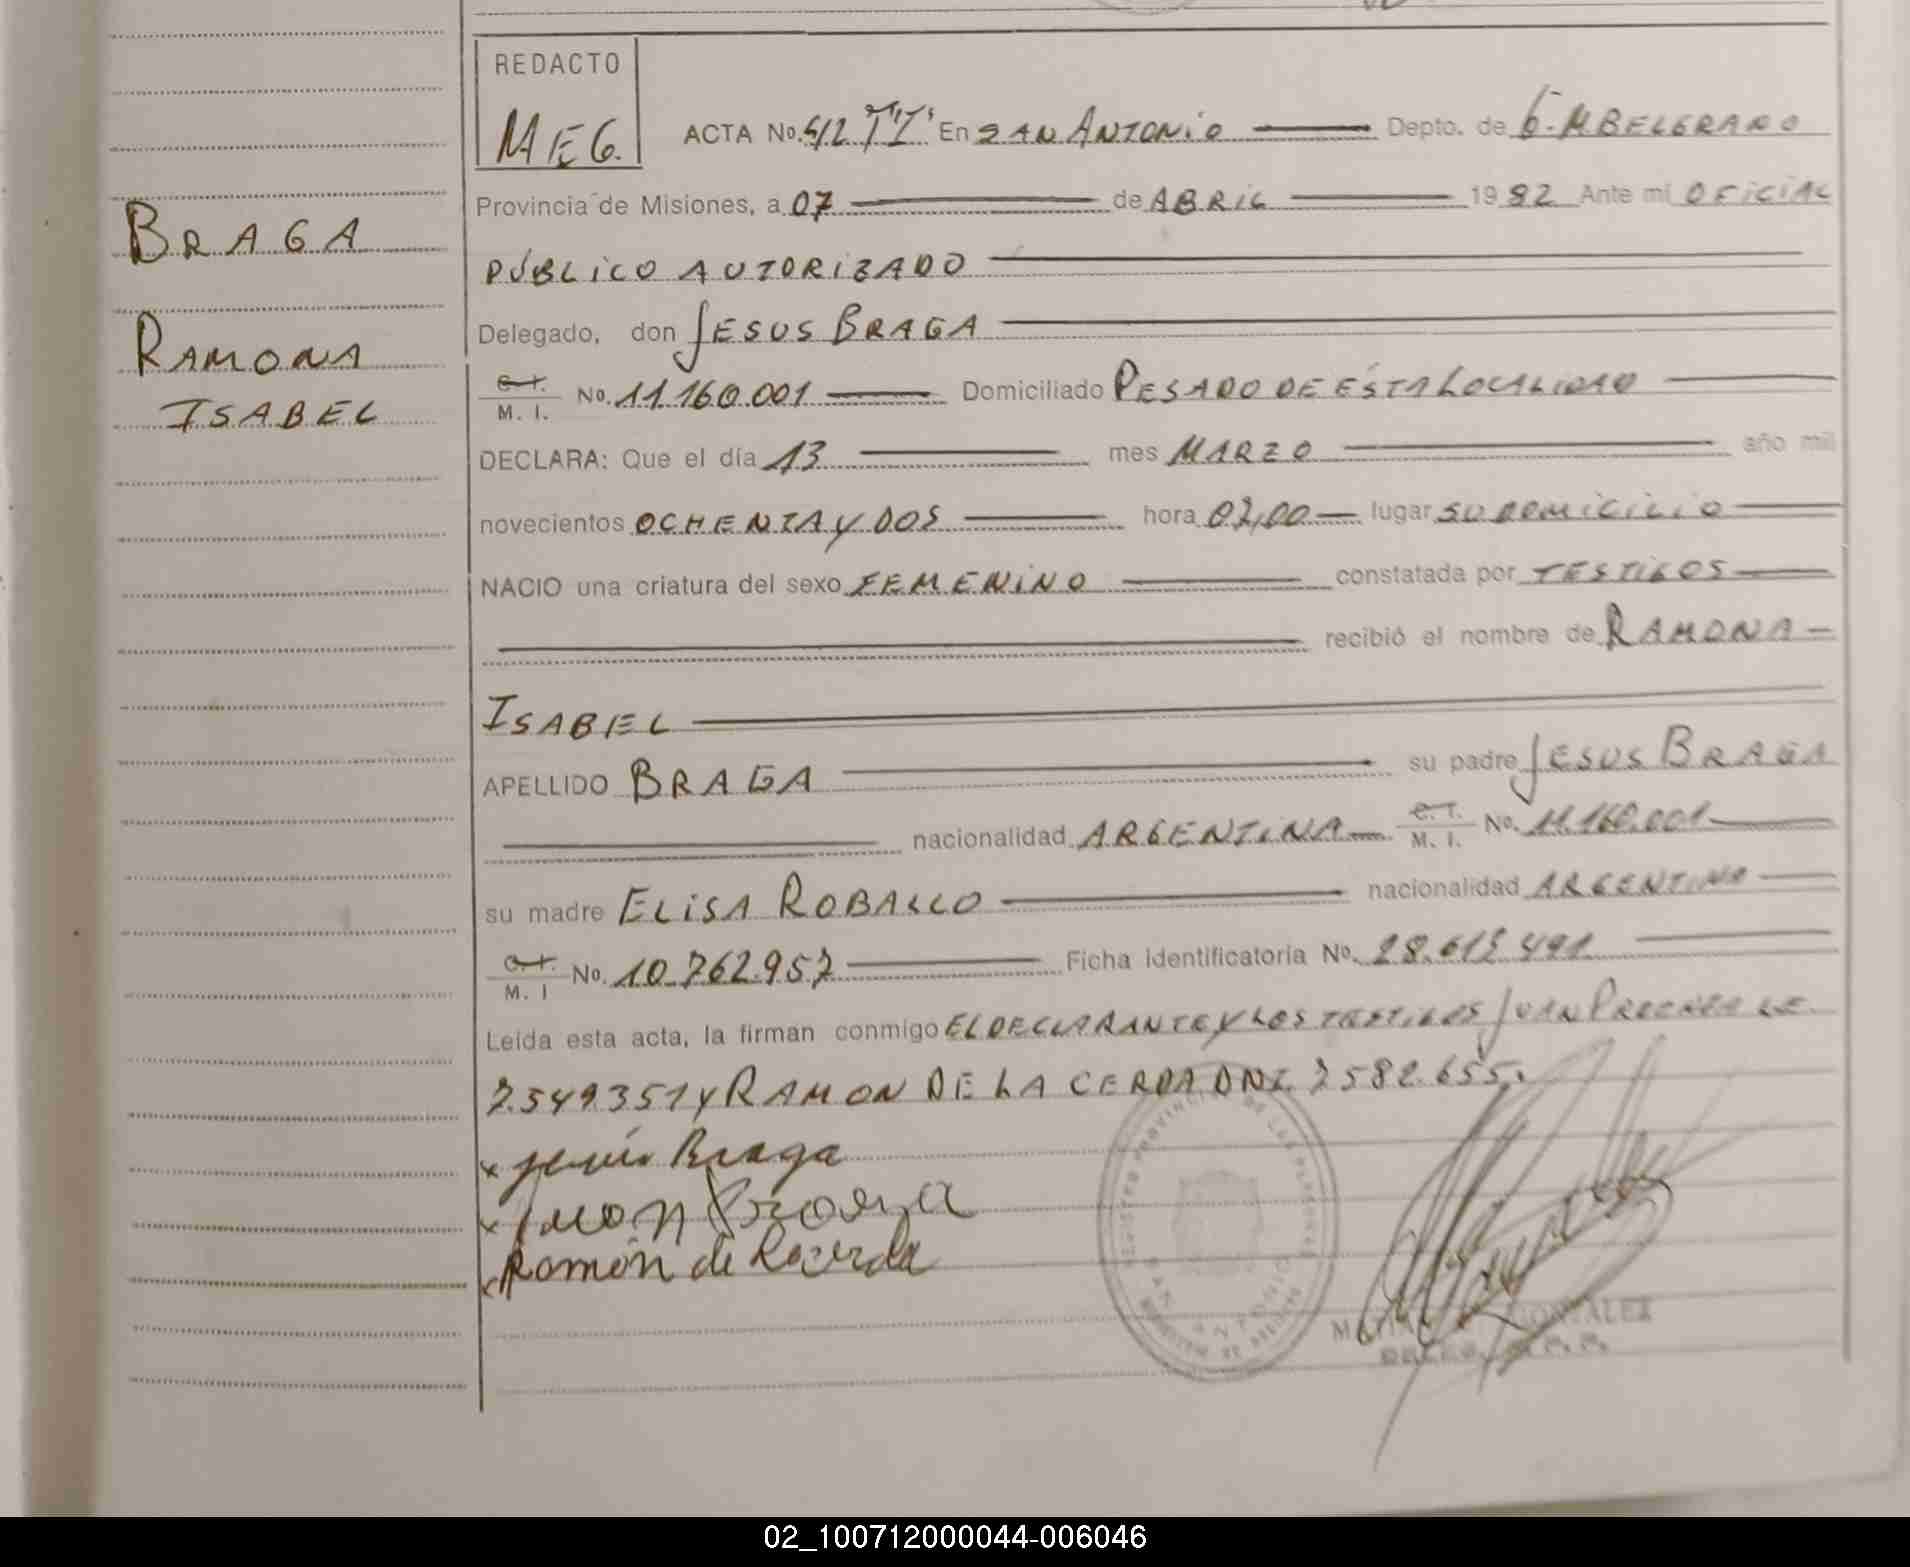 BRAGA
RAMONA
ISABEL
REDACTO
M E G.
ACTA No. 512 TI" En SAN ANTONIO Depto. de G. M BELGRANO
Provincia de Misiones, a 07 de ABRIL 1982 Ante mi OFICIAL
PÚBLICO AUTORIZADO
Delegado, don JESUS BRAGA
C. I. M. I. No. 11.160.001 Domiciliado PESADO DE ÉSTA LOCALIDAD
DECLARA: Que el día 13 mes MARZO año mil
novecientos OCHENTA Y DOS hora 07,00 lugar SU DOMICILIO
NACIO una criatura del sexo FEMENINO constatada por TESTIGOS
recibió el nombre de RAMONA
ISABEL
APELLIDO BRAGA su padre JESUS BRAGA
nacionalidad ARGENTINA C. I. M. I. No. 11.160.001
su madre ELISA ROBALLO nacionalidad ARGENTINA
C. I. M. I No. 10.762.957 Ficha identificatoria No. 28.613.491
Leída esta acta, la firman conmigo EL DECLARANTE Y LOS TESTIGOS JUAN LE.
7.549.351 Y RAMON DE LA CERDA DNI. 7582.655.
x Jesús Braga
x Juan
x Ramón de Lacerda
REGISTRO PROVINCIAL DE LAS PERSONAS
SAN ANTONIO
GONZALEZ